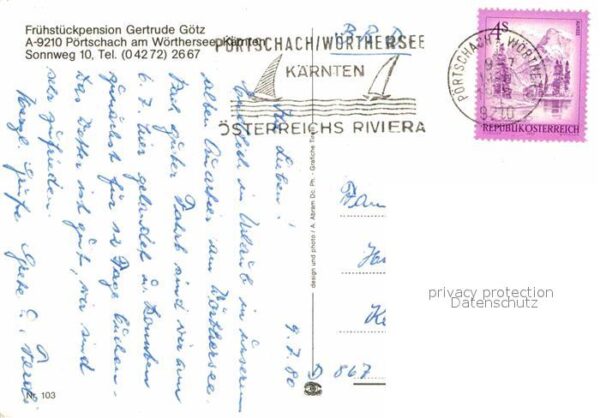 Frühstückpension Gertrude Götz
A-9210 Pörtschach am Wörthersee, Kärnten
Sonnweg 10, Tel. (0 42 72) 26 67
B R D
PÖRTSCHACH/WÖRTHERSEE
KÄRNTEN
ÖSTERREICHS RIVIERA
PÖRTSCHACH WÖRTHE
9210
4S
REPUBLIK ÖSTERREICH
9.7.80
Ihr Lieben!
Endlich im Urlaub in unserem
alten Quartier am Wörthersee.
Nach guter Fahrt sind wir am
6.7. hier gelandet u. konnten
für 12 Tage buchen.
Das Wetter ist gut, wir sind
sehr zufrieden.
Herzl. Grüße
design und photo / A. Abram Dc. Ph. - Grafiche
Fam
D 867
Nr. 103
privacy protection
Datenschutz